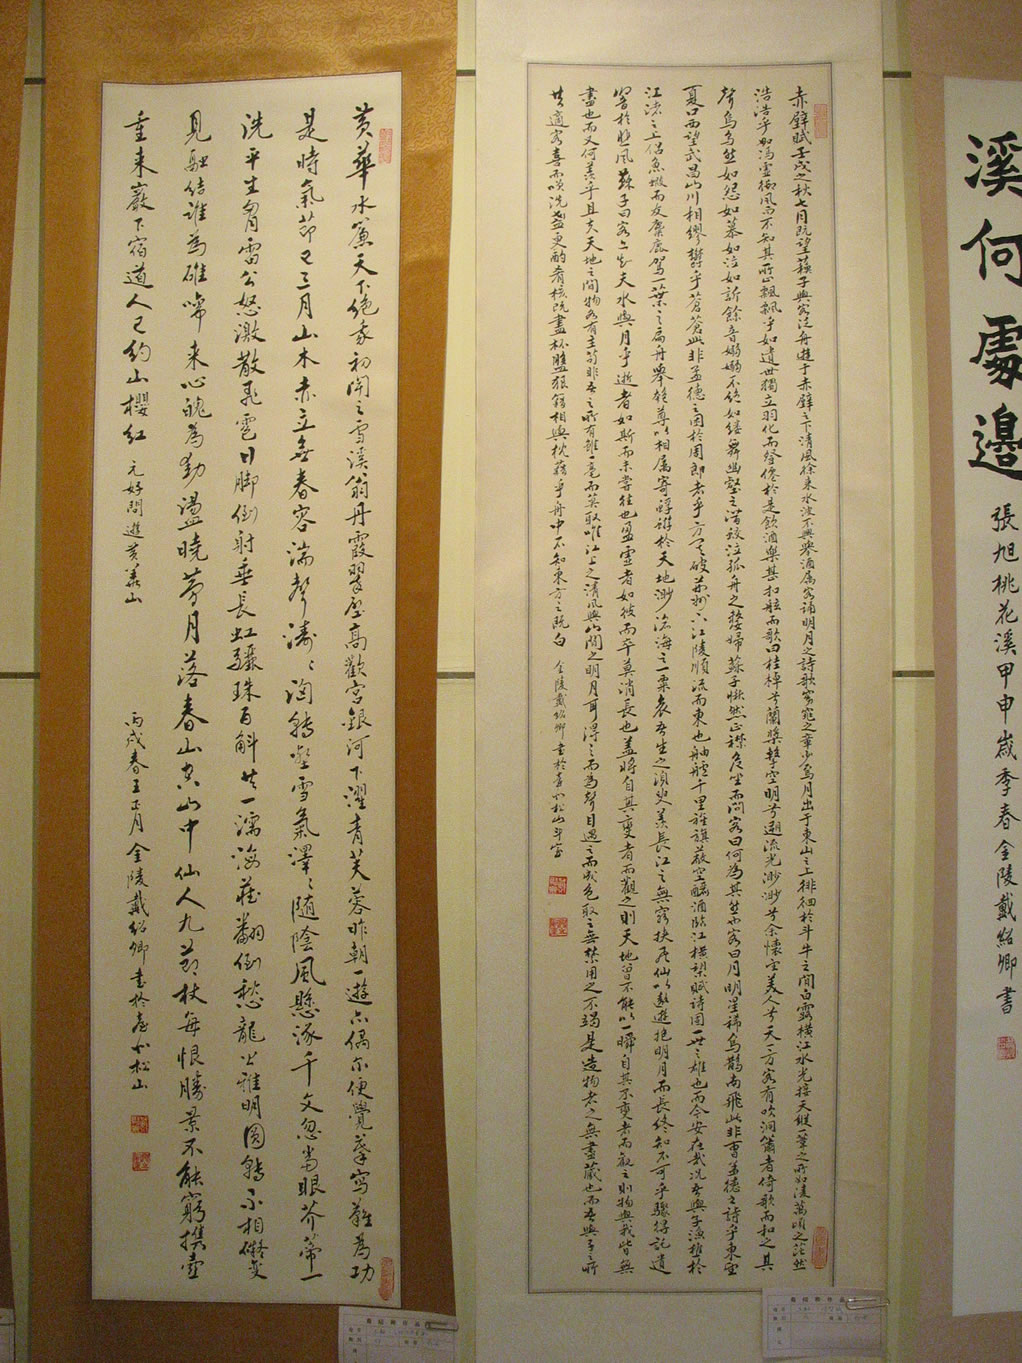 溪何處邊
張旭桃花溪甲申歲季春金陵戴紹卿書
赤壁賦壬戌之秋七月既望蘇子與客泛舟遊于赤壁之下清風徐來水波不興舉酒屬客誦明月之詩歌窈窕之章少焉月出于東山之上徘徊於斗牛之間白露橫江水光接天縱一葦之所如凌萬頃之茫然
浩浩乎如馮虛御風而不知其所止飄飄乎如遺世獨立羽化而登僊於是飲酒樂甚扣舷而歌曰桂棹兮蘭槳擊空明兮泝流光渺渺兮余懷望美人兮天一方客有吹洞簫者倚歌而和之其
聲烏烏然如怨如慕如泣如訴餘音嫋嫋不絕如縷舞幽壑之潛蛟泣孤舟之嫠婦蘇子愀然正襟危坐而問客曰何為其然也客曰月明星稀烏鵲南飛此非曹孟德之詩乎東望
夏口西望武昌山川相繆鬱乎蒼蒼此非孟德之困於周郎者乎方其破荊州下江陵順流而東也舳艫千里旌旗蔽空釃酒臨江橫槊賦詩固一世之雄也而今安在哉況吾與子漁樵於
江渚之上侶魚蝦而友麋鹿駕一葉之扁舟舉匏尊以相屬寄蜉蝣於天地渺滄海之一粟哀吾生之須臾羨長江之無窮挾飛仙以遨遊抱明月而長終知不可乎驟得託遺
響於悲風蘇子曰客亦知夫水與月乎逝者如斯而未嘗往也盈虛者如彼而卒莫消長也蓋將自其變者而觀之則天地曾不能以一瞬自其不變者而觀之則物與我皆無
盡也而又何羨乎且夫天地之間物各有主苟非吾之所有雖一毫而莫取唯江上之清風與山間之明月耳得之而為聲目遇之而成色取之無禁用之不竭是造物者之無盡藏也而吾與子之所
共適客喜而笑洗盞更酌肴核既盡杯盤狼籍相與枕藉乎舟中不知東方之既白 金陵戴紹卿書於松山斗室
黃華水簾天下絕我初聞之雪溪翁丹霞翠壁高歡宮銀河下濯青芙蓉昨朝一遊亦偶爾便覺摹寫難為功
是時氣節已三月山木赤立無春容湍聲洶洶轉絕壑雪氣澤澤隨陰風懸流千丈忽當眼芥蒂一
洗平生胸雷公怒激散飛雹日腳倒射垂長虹驪珠百斛供一瀉海藏翻倒愁龍公雄明圓轉不相礙變
見融結誰為雄歸來心魄為動盪曉夢月落春山空山中仙人九節杖每恨勝景不能窮攜壺
重來巖下宿道人已約山櫻紅 元好問遊黃華山
丙戌春王正月金陵戴紹卿書於松山